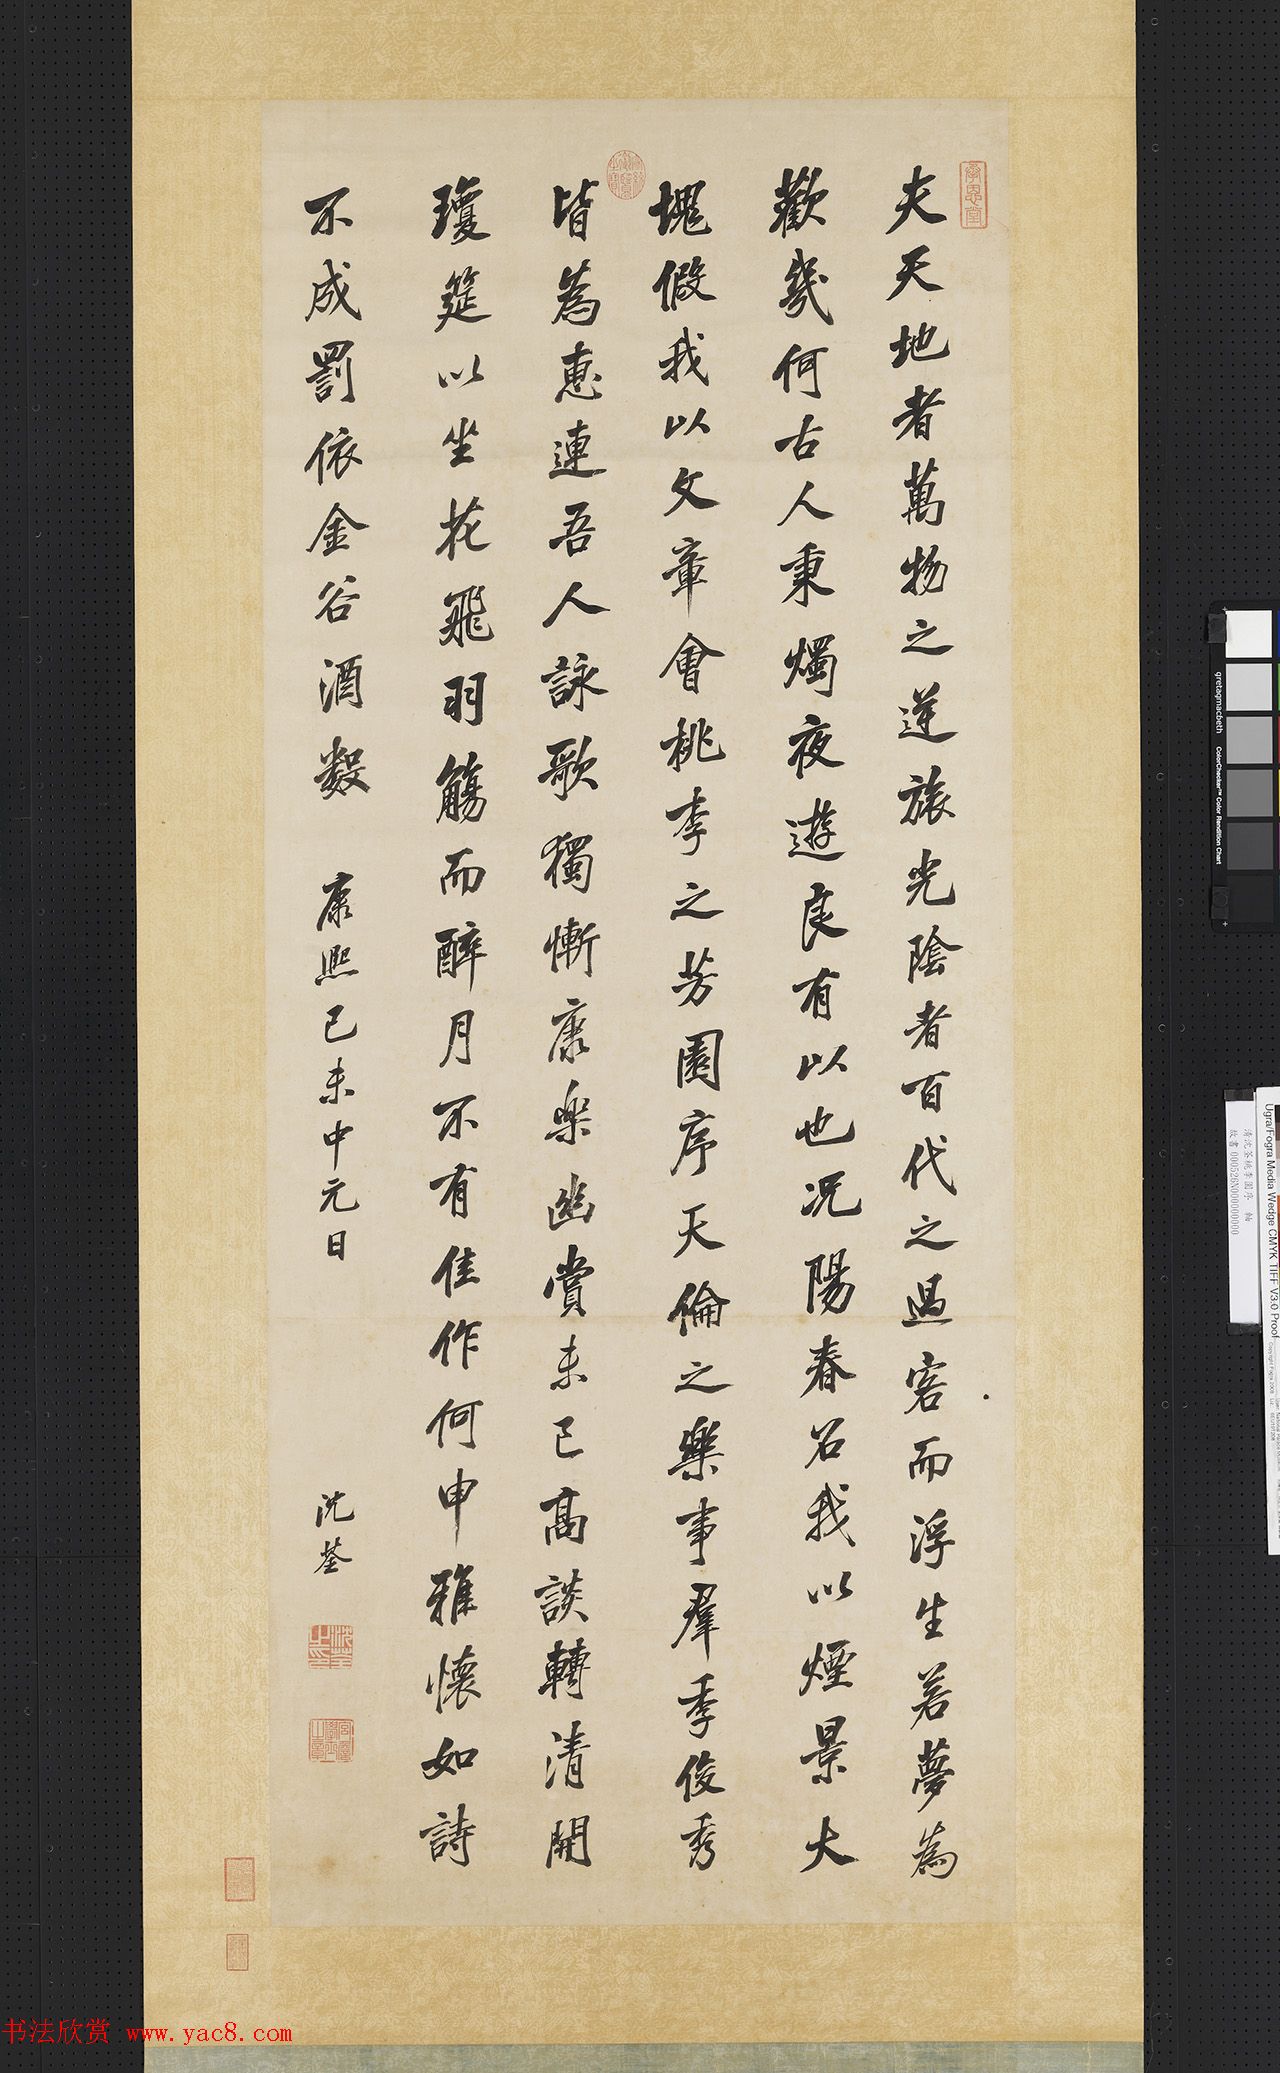 承恩堂
夫天地者萬物之逆旅光陰者百代之過客而浮生若夢為
歡幾何古人秉燭夜遊良有以也況陽春召我以煙景大
塊假我以文章會桃李之芳園序天倫之樂事羣季俊秀
皆為惠連吾人詠歌獨慚康樂幽賞未已高談轉清開
瓊筵以坐花飛羽觴而醉月不有佳作何申雅懷如詩
不成罰依金谷酒數 康熙己未中元日 沈荃
沈荃之印
gretagmacbeth ColorChecker™ Color Rendition Chart
清沈荃桃李園序 軸
故書000526N000000000
Ugra/Fogra Media Wedge CMYK TIFF V3.0 Proof
书法欣赏 www.yac8.com